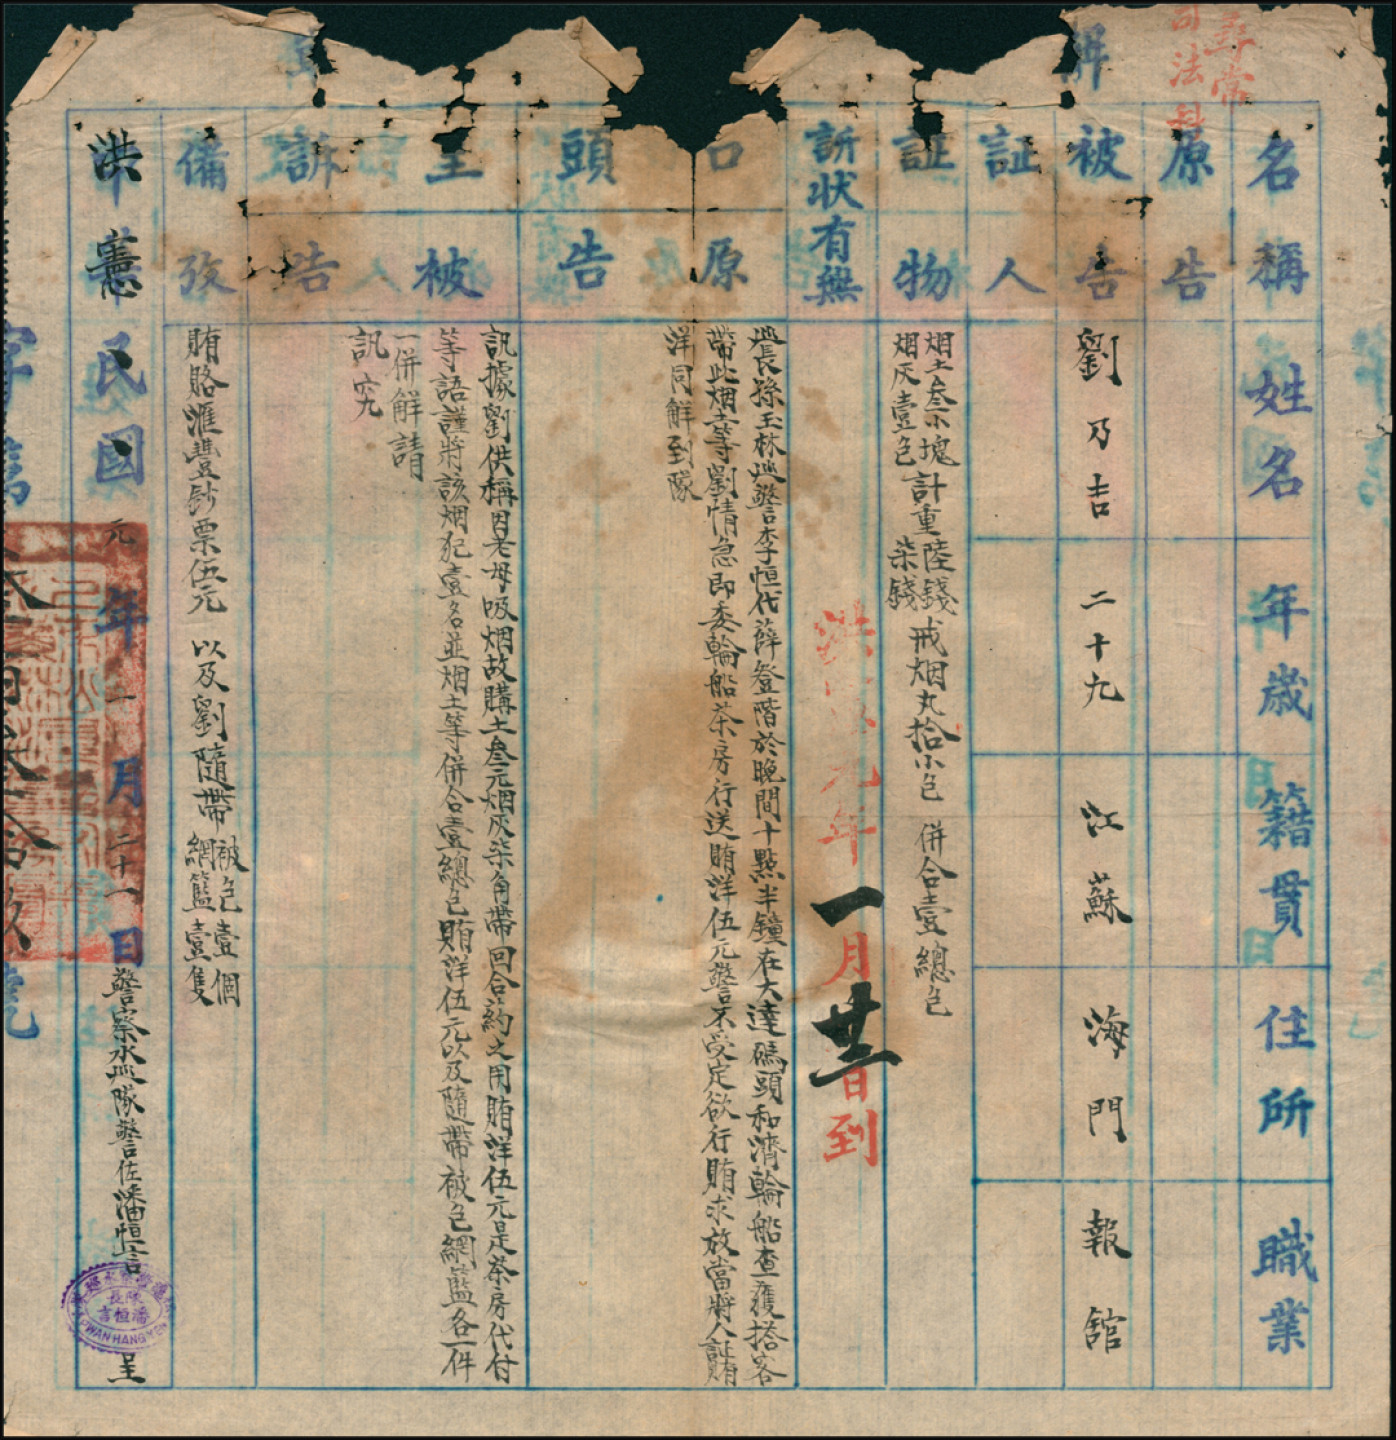 尋常
司法科
解
名稱 姓名 年歲 籍貫 住所 職業
原告
被告 劉乃吉 二十九 江蘇 海門 報館
証人
証物 烟土叁小塊 計重陸錢 戒烟丸拾小包 併合壹總包
烟灰壹包 柒錢
訴狀有無
洪憲元年一月廿二日到
口頭原告 巡長孫玉林巡警李恒代薛登階於晚間十點半鐘在大達碼頭和濟輪船查獲搭客
帶此烟土等劉情急即委輪船茶房行送賄洋伍元警不受定欲行賄求放當將人証賄
洋同解到隊
呈訴被告 訊據劉供稱因老母吸烟故購土叁元烟灰柒角帶回合葯之用賄洋伍元是茶房代付
等語謹將該烟犯壹名並烟土等併合壹總包賄洋伍元以及隨帶被包網籃各一件
一併解請
訊究
備攷 賄賂滙豐鈔票伍元 以及劉隨帶被包壹個
網籃壹隻
洪憲
中華民國元年一月二十一日警察水巡隊警佐潘恒言 呈
隊長
潘恒言
PWAN HANG YEN
字第 壹百 拾玖號